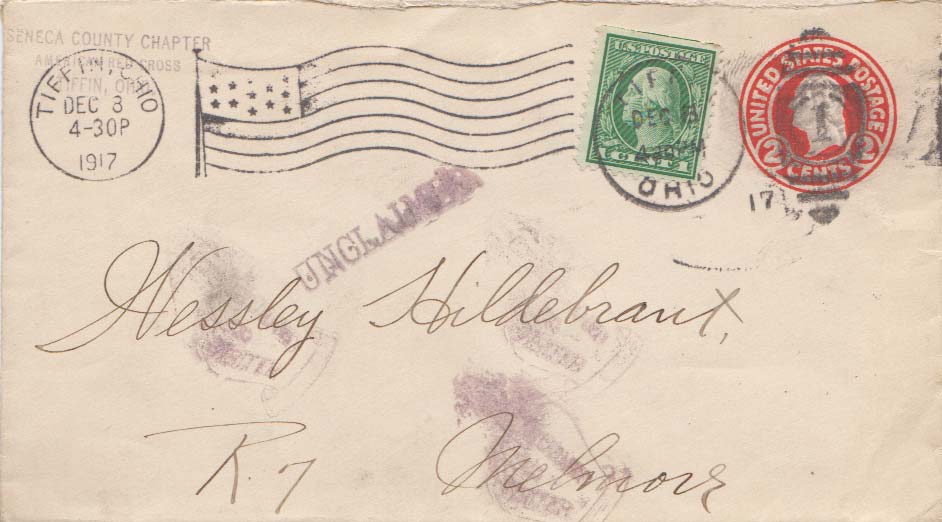 SENECA COUNTY CHAPTER
AMERICAN RED CROSS
TIFFIN, OHIO
TIFFIN, OHIO
DEC 3
4-30P
1917
U.S. POSTAGE
DEC
OHIO
17
UNITED STATES POSTAGE
2 CENTS 2
1
UNCLAIMED
Wessley Hildebrant,
R. 7 Melmore